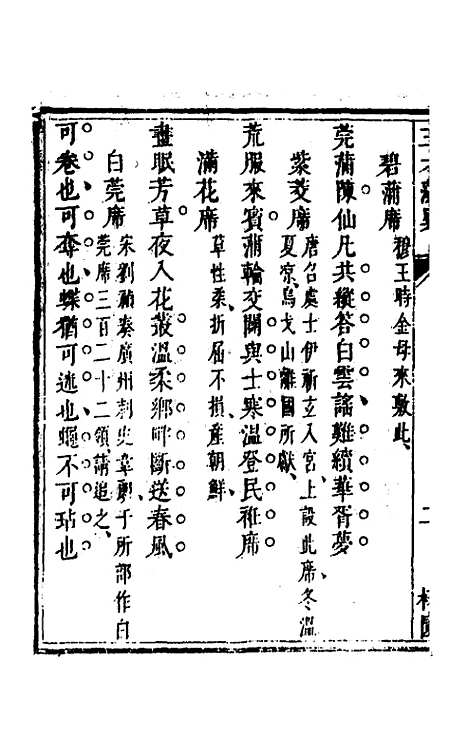 碧蒲席 穆王時金母來敷此
莞蒲陳仙凡共縱答白雲謠難續華胥夢
紫茭席 唐召處士伊祈玄入宮上設此席冬溫
夏凉烏戈山離國所獻
荒服來賓蒲輪交闢與士寒溫登民衽席
滿花席 草性柔折屈不損産朝鮮
晝眠芳草夜入花叢溫柔鄉畔斷送春風
白莞席 宋劉禎奏廣州刺史韋朗于所部作白
莞席三百二十二領請追之
可卷也可奪也蝶猶可迷也蠅不可玷也
二